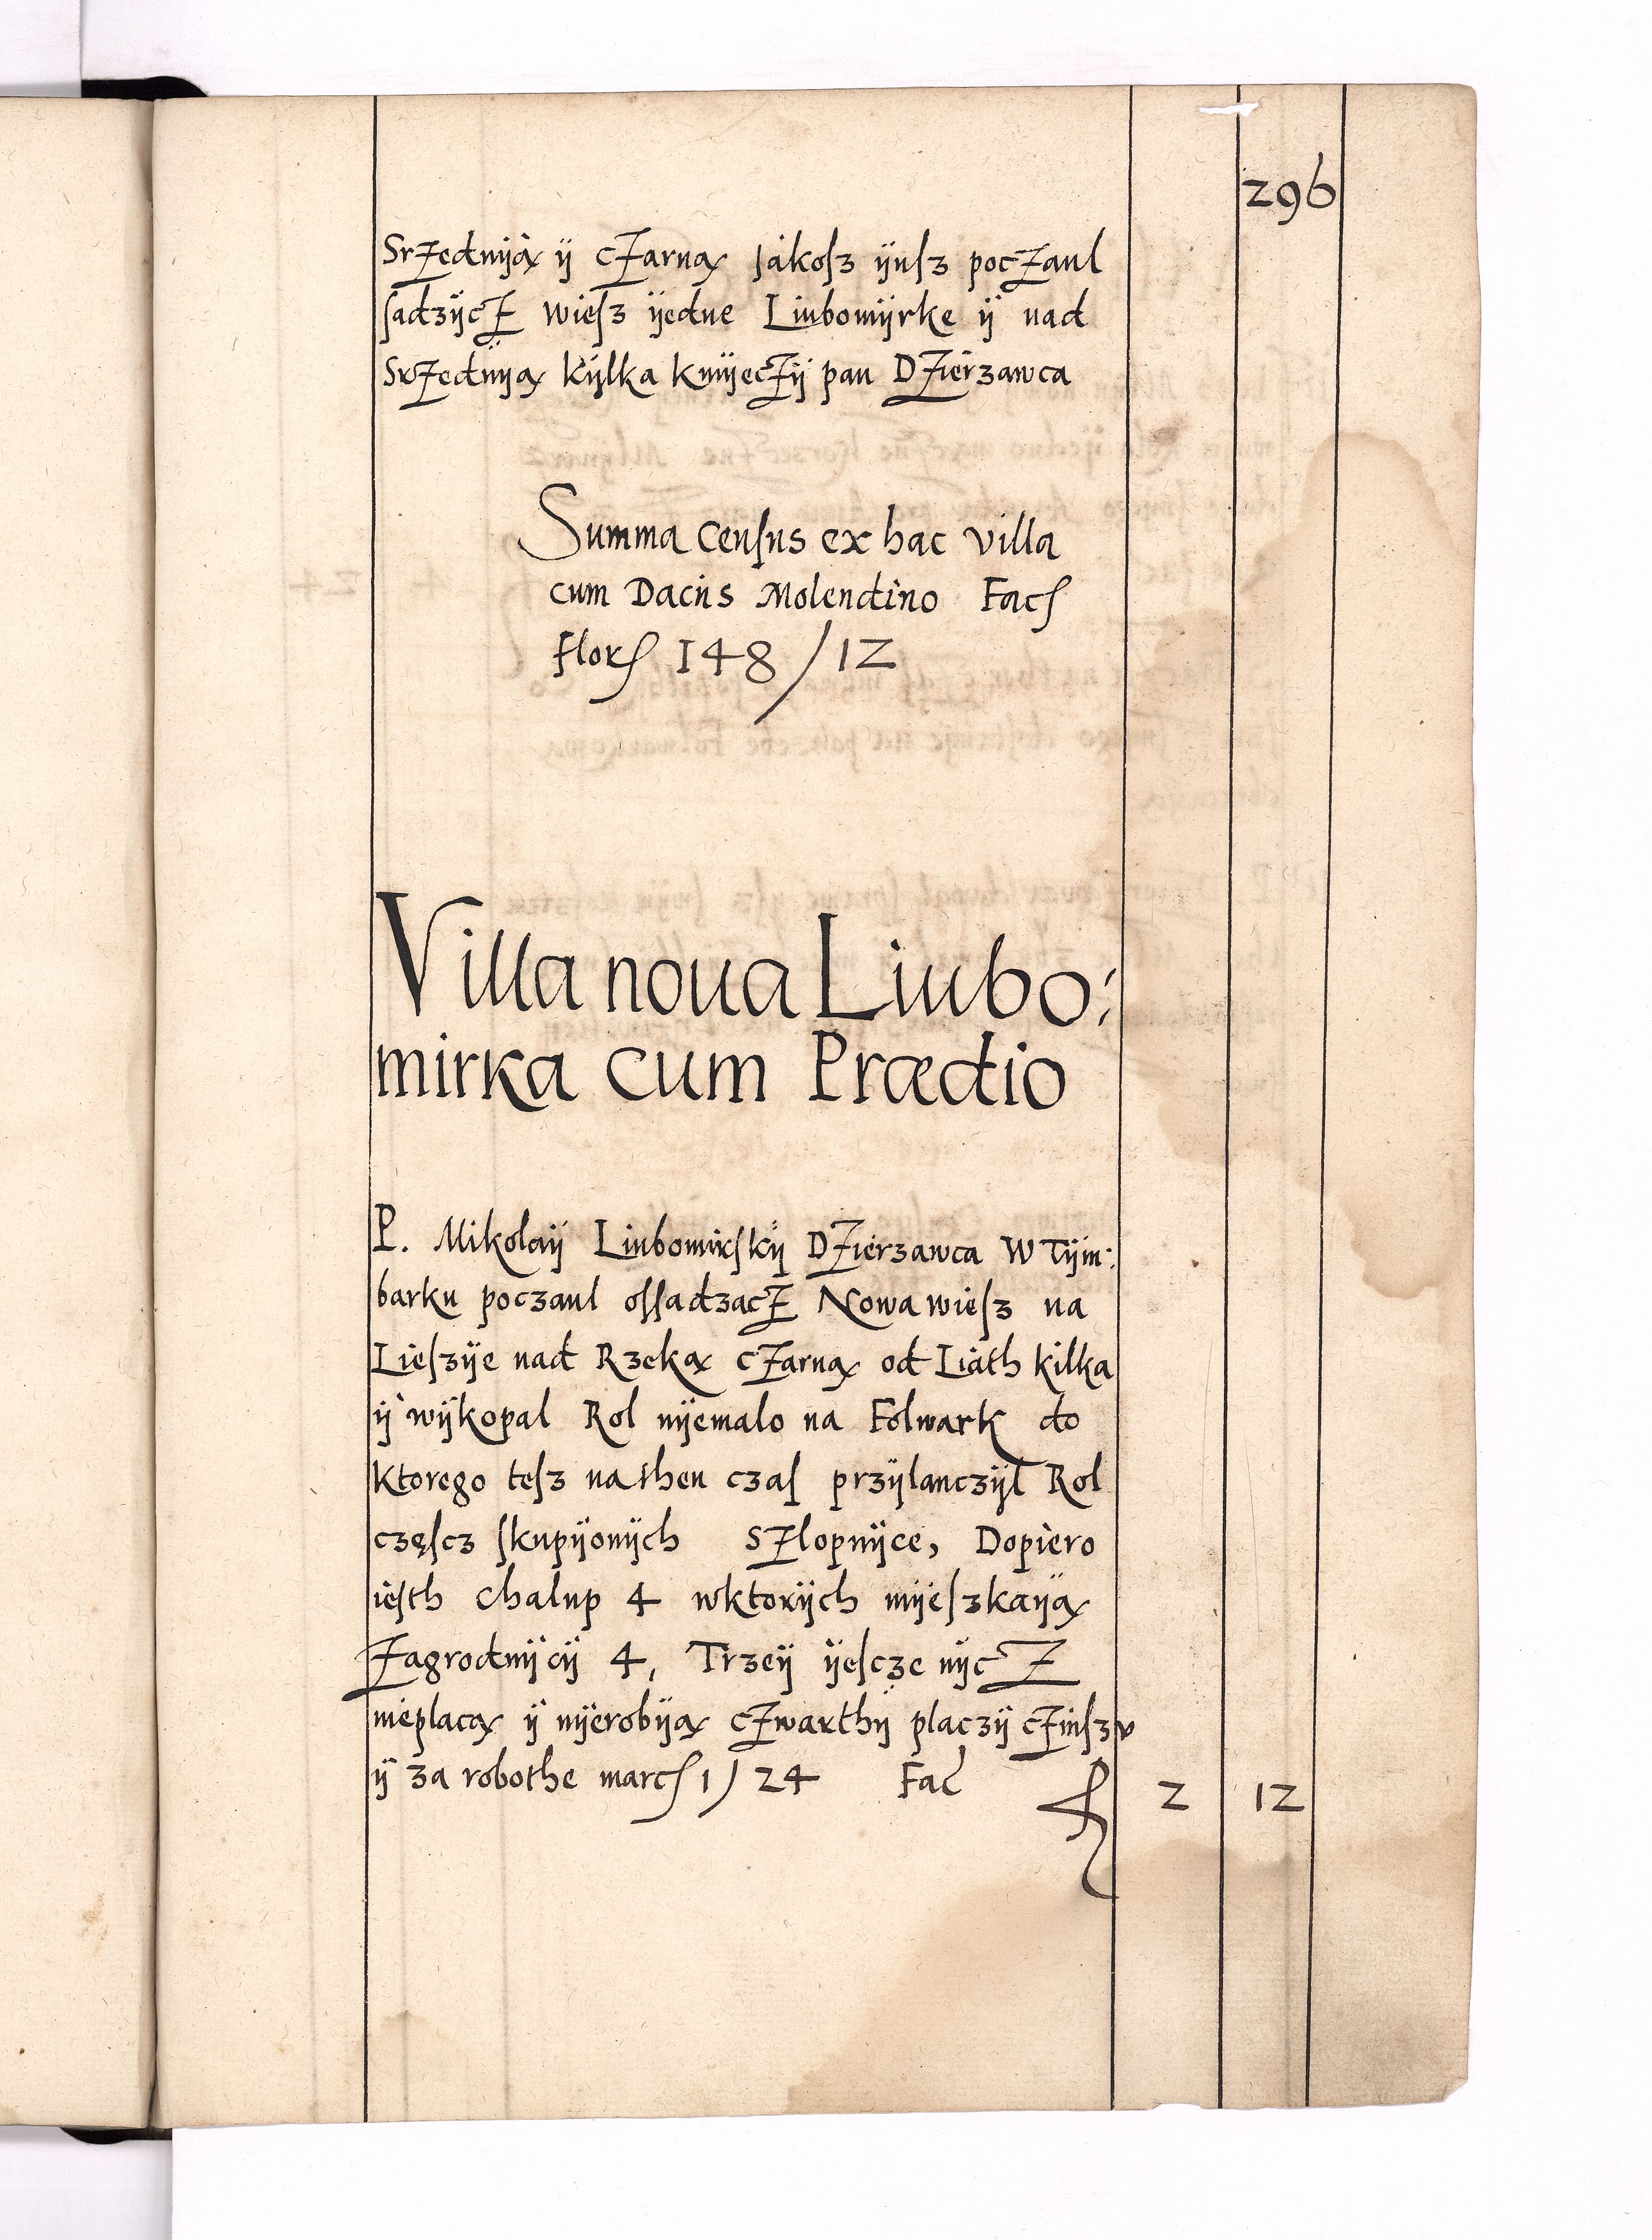 296
Srzednyą ÿ czarną jakosz ÿusz poczaul
sadzÿcz wiesz ÿedne Liubomÿrke ÿ nad
Srzednÿą kÿlka kmÿeczÿ pan Dzierzawca
Summa census ex hac villa
cum Daciis Molendino Facſ
Florſ 148/12
Villa noua Liubo:
mirka cum Prædio
P. Mikolaiÿ Liubomirskÿ Dzierzawca W Tÿm:
barku poczaul ossadzacz Nowa wiesz na
Lieszÿe nad Rzeką czarną od Liath kilka
ÿ wÿkopal Rol nÿemalo na Folwark do
ktorego tesz na then czas przÿlanczÿl Rol
częscz skupÿonÿch Szlopnÿce, Dopiero
iesth chalup 4 wktorÿch mÿeszkaÿą
Zagrodnÿcÿ 4, Trzeÿ ÿescze nÿcz
nieplacą ÿ nÿerobÿą czwarthÿ placzÿ czinszu
ÿ za robothe marcſ 1/24 Fac 2 12